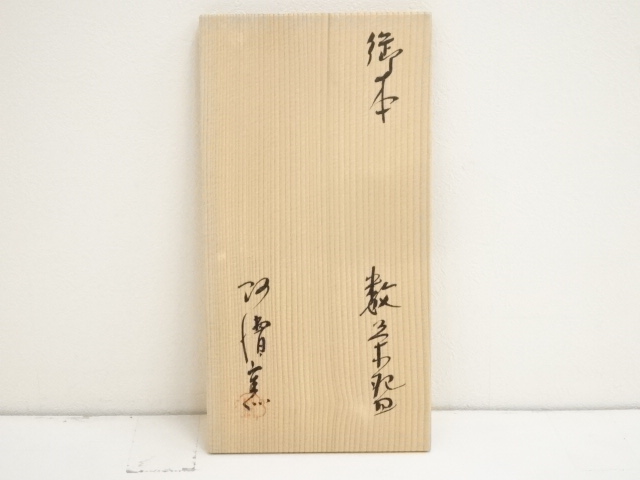 御本
数茶盌
阿漕窯